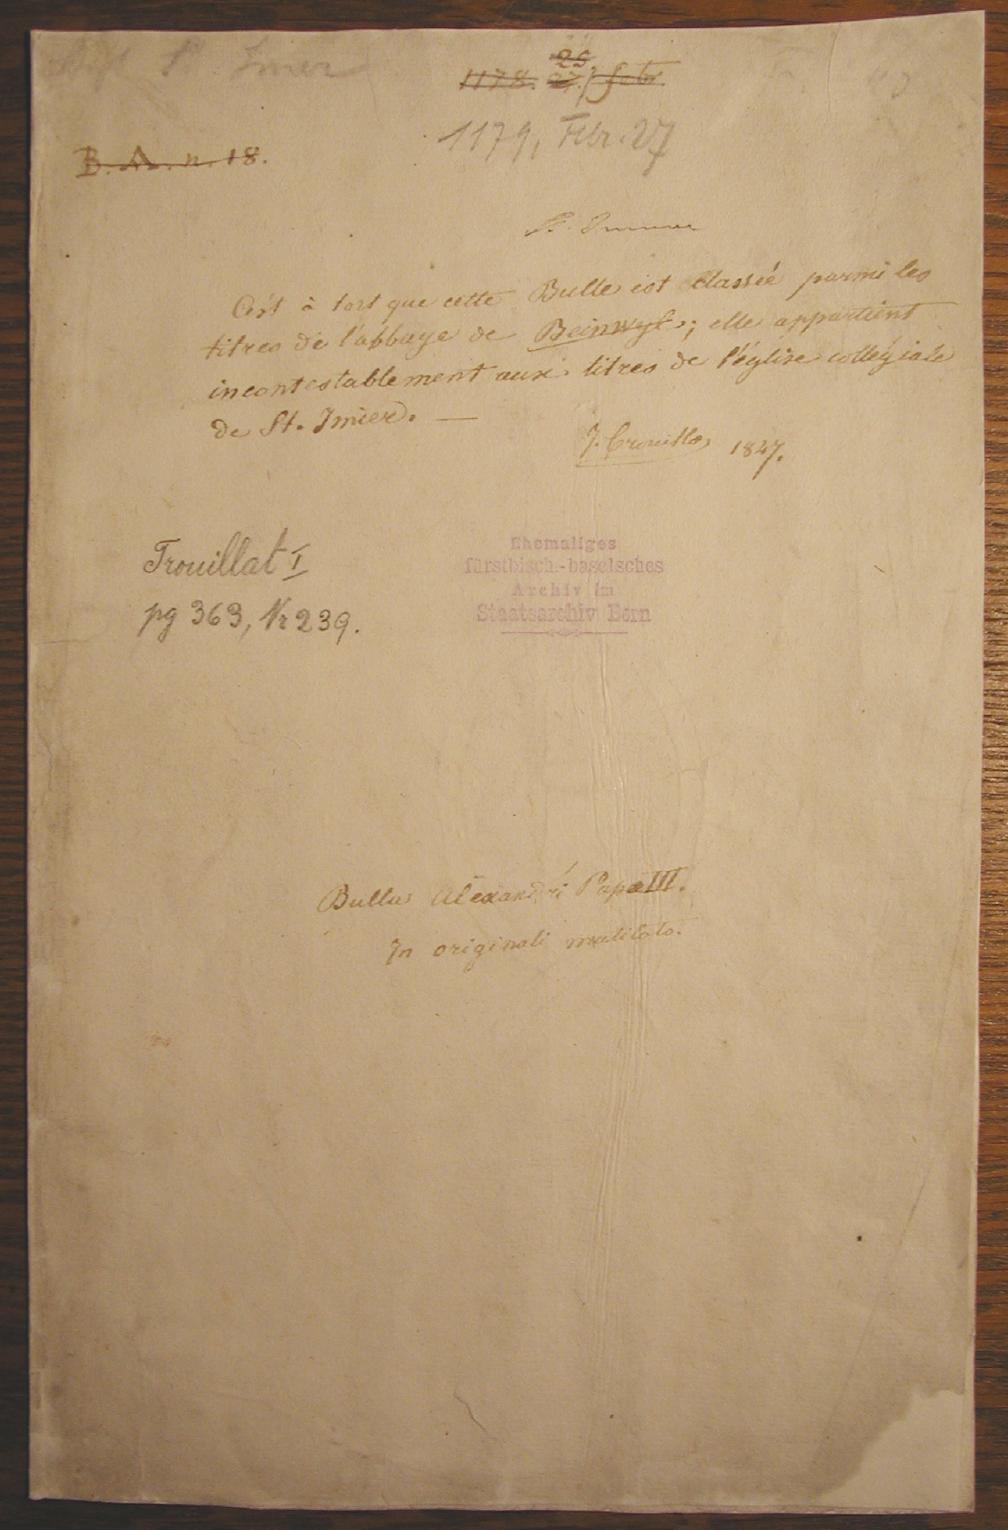 St. Imer
25
1178. 27. febr.
1179, Febr. 27
B. A. n. 18.
St. Immer
C'est à tort que cette Bulle est classée parmi les
titres de l'abbaye de Beinwyl; elle appartient
incontestablement aux titres de l'église collégiale
de St. Imier. —
J. Trouillat, 1847.
Trouillat I
pg 363, Nr 239.
Ehemaliges
fürstbisch.-baselsches
Archiv im
Staatsarchiv Bern
Bulla Alexandri Papæ III.
In originali mutilato.